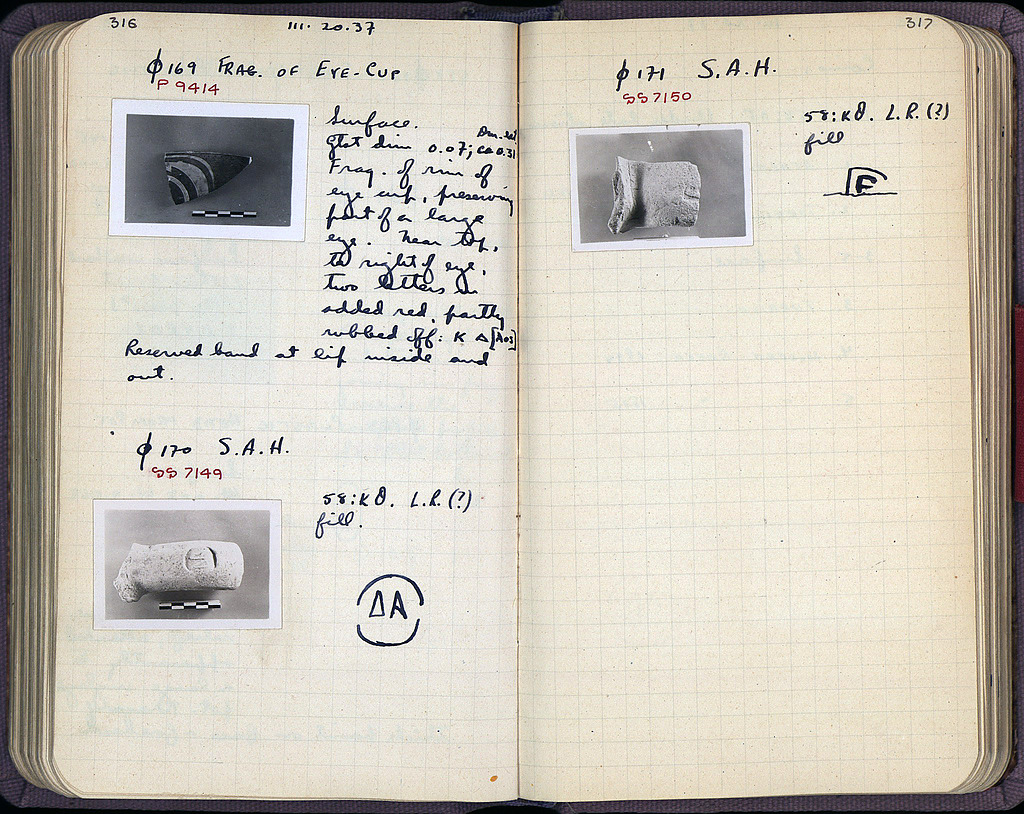 316
III. 20.37
ϕ169 FRAG. OF EYE-CUP
P 9414
Surface.
Gtst dim 0.07; Dm. est. ca 0.31
Frag. of rim of
eye cup, preserving
part of a large
eye. Near top,
to right of eye,
two letters in
added red, partly
rubbed off: Κ Δ [λος]
Reserved band at lip inside and
out.
ϕ170 S.A.H.
SS 7149
58:ΚΘ. L.R.(?)
fill.
ΔΑ
317
ϕ171 S.A.H.
SS 7150
58:ΚΘ. L.R.(?)
fill
F